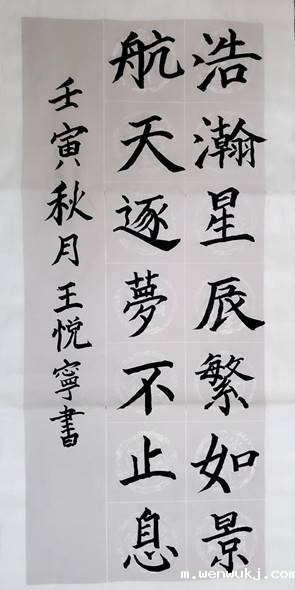 浩瀚星辰繁如景
航天逐夢不止息
壬寅秋月王悦寧書
m.wenwukj.com